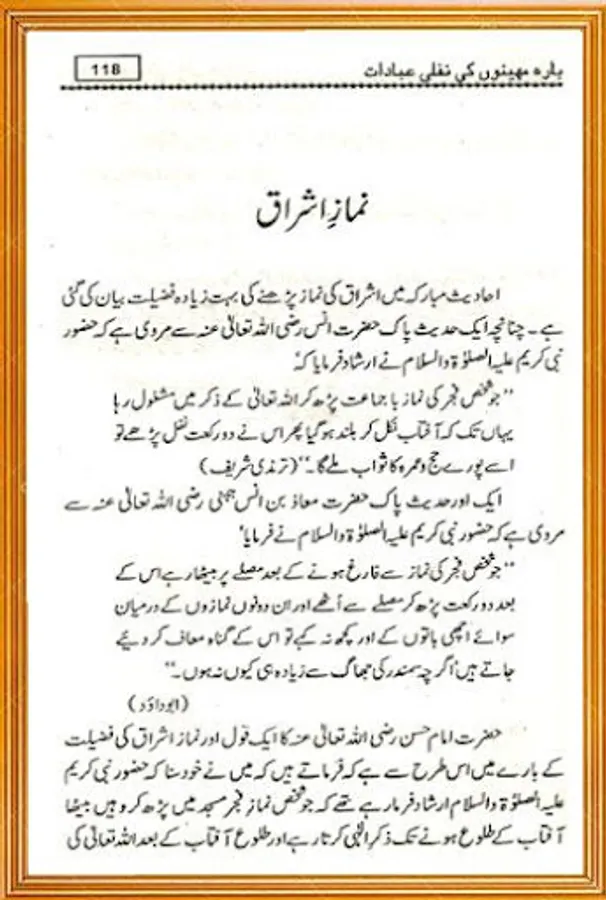 118
بارہ مہینوں کی نفلی عبادات
نمازِ اشراق
احادیث مبارکہ میں اشراق کی نماز پڑھنے کی بہت زیادہ فضیلت بیان کی گئی
ہے۔ چنانچہ ایک حدیث پاک حضرت انس رضی اللہ تعالیٰ عنہ سے مروی ہے کہ حضور
نبی کریم علیہ الصلوٰۃ والسلام نے ارشاد فرمایا کہ
”جو شخص فجر کی نماز با جماعت پڑھ کر اللہ تعالیٰ کے ذکر میں مشغول رہا
یہاں تک کہ آفتاب نکل کر بلند ہو گیا پھر اس نے دو رکعت نفل پڑھے تو
اسے پورے حج و عمرہ کا ثواب ملے گا۔“ (ترمذی شریف)
ایک اور حدیث پاک حضرت معاذ بن انس جہنی رضی اللہ تعالیٰ عنہ سے
مروی ہے کہ حضور نبی کریم علیہ الصلوٰۃ والسلام نے فرمایا‘
”جو شخص فجر کی نماز سے فارغ ہونے کے بعد مصلے پر بیٹھا رہے اس کے
بعد دو رکعت پڑھ کر مصلے سے اُٹھے اور ان دونوں نمازوں کے درمیان
سوائے اچھی باتوں کے اور کچھ نہ کہے تو اس کے گناہ معاف کر دیئے
جاتے ہیں‘ اگرچہ سمندر کی جھاگ سے زیادہ ہی کیوں نہ ہوں۔“
(ابوداؤد)
حضرت امام حسن رضی اللہ تعالیٰ عنہ کا ایک قول اور نماز اشراق کی فضیلت
کے بارے میں اس طرح سے ہے کہ فرماتے ہیں کہ میں نے خود سنا کہ حضور نبی کریم
علیہ الصلوٰۃ والسلام ارشاد فرما رہے تھے کہ جو شخص نماز فجر مسجد میں پڑھ کر وہیں بیٹھا
آفتاب کے طلوع ہونے تک ذکر الٰہی کرتا رہے اور طلوع آفتاب کے بعد اللہ تعالیٰ کی